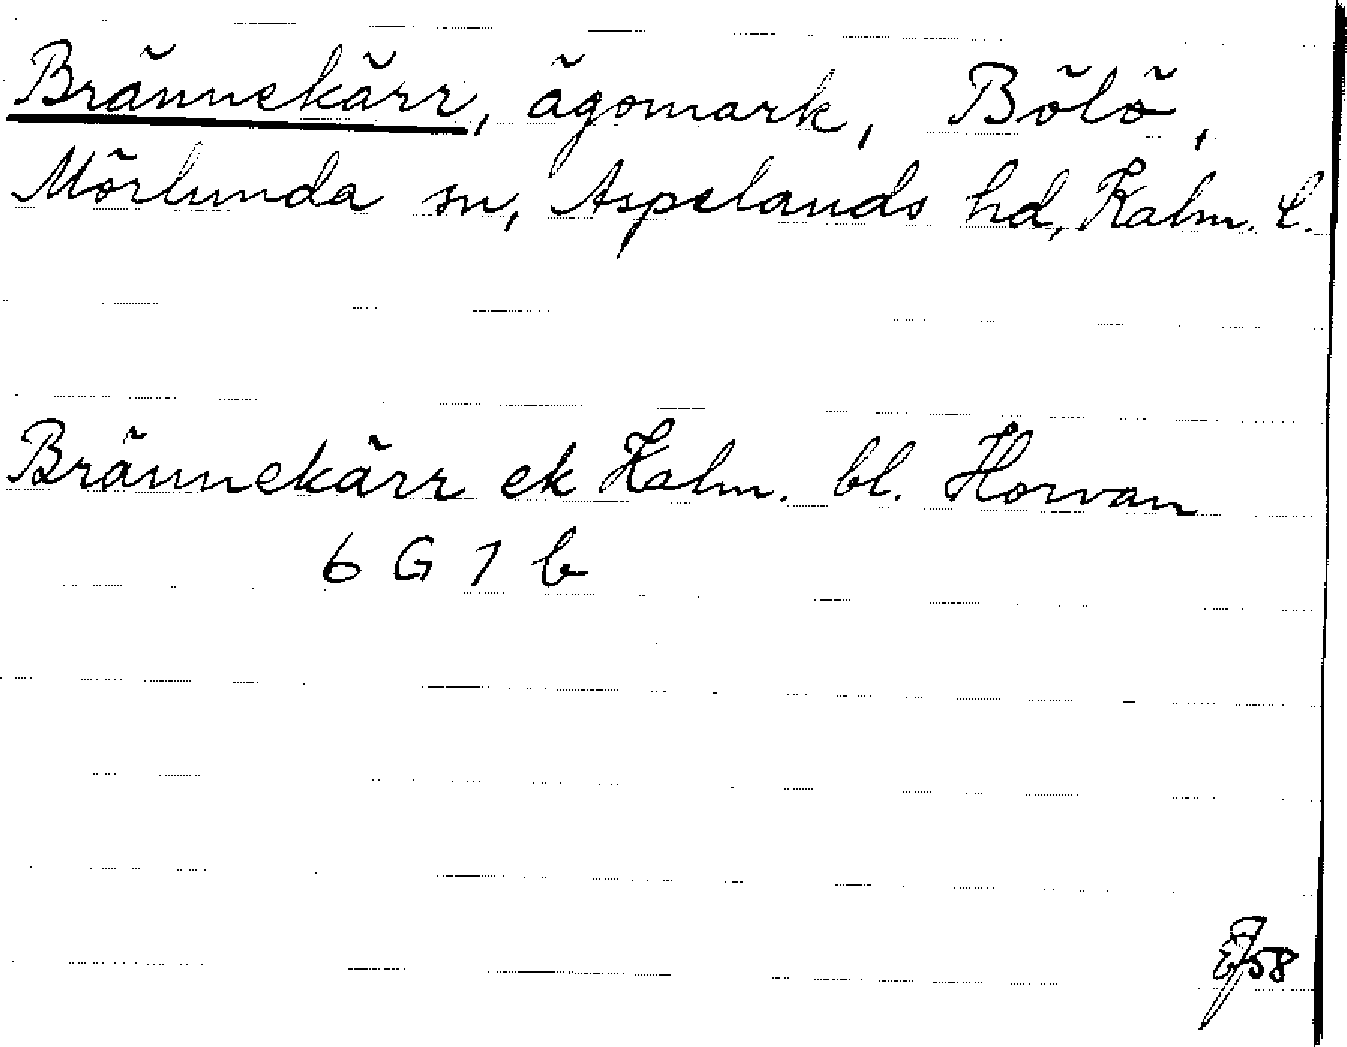 Brännekärr, ägomark, Bölö,
Mörlunda sn, Aspelands hd, Kalm. l.
Brännekärr ek Kalm. bl. Horvan
6 G 1 b
58